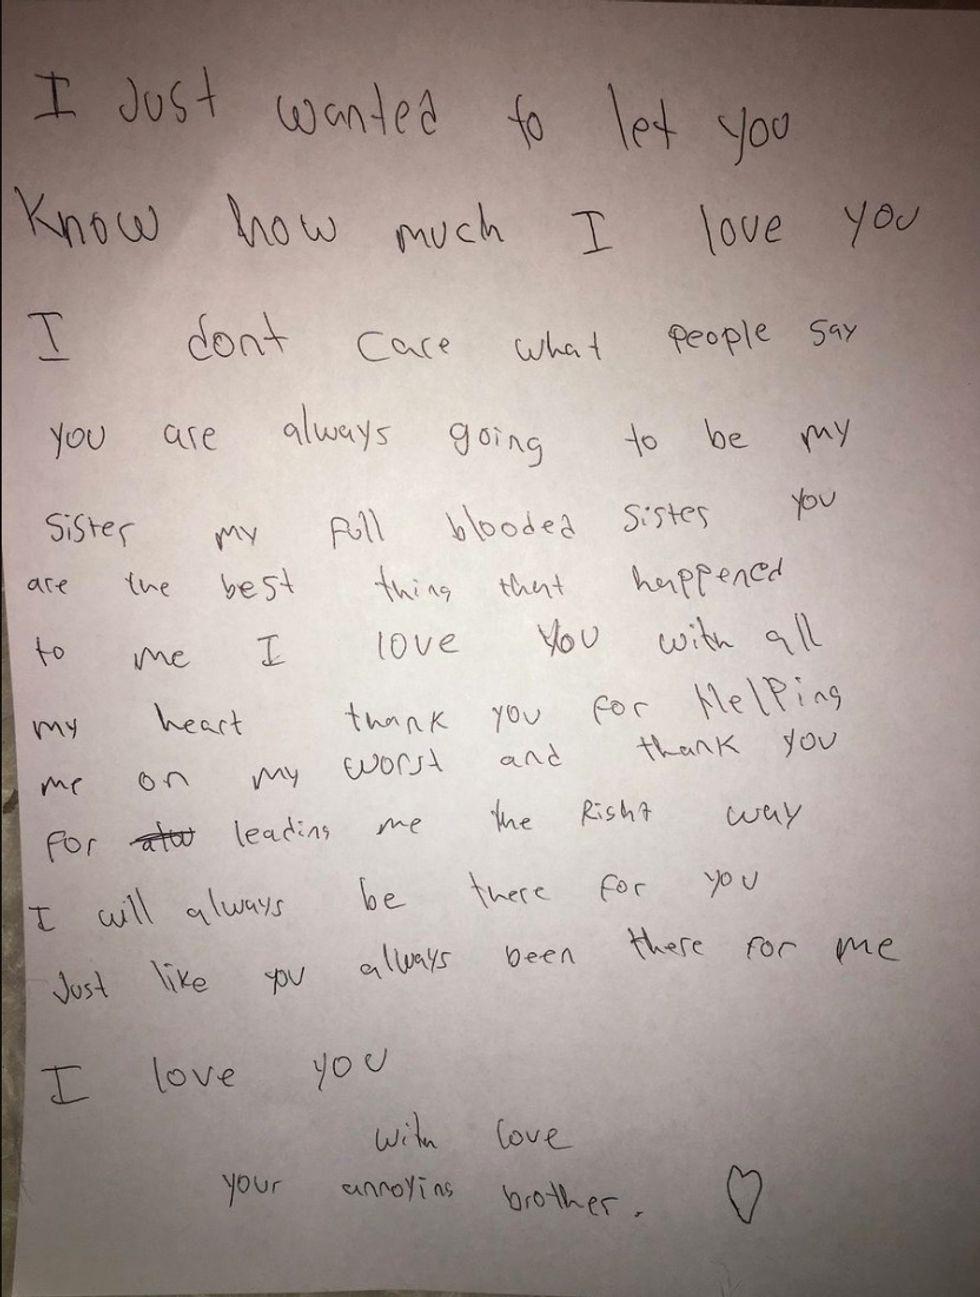 I Just wanted to let you
Know how much I love you
I dont care what people say
you are always going to be my
Sister my full blooded sister you
are the best thing that happened
to me I love you with all
my heart thank you for Helping
me on my worst and thank you
for leading me the Right way
I will always be there for you
Just like you always been there for me
I love you
with love
your annoying brother.